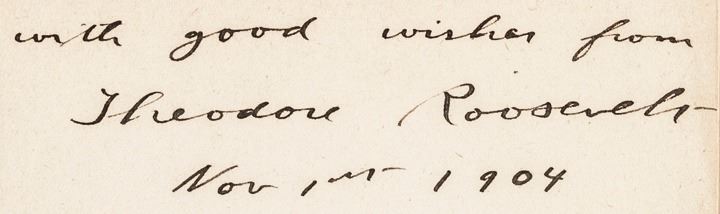 with good wishes from
Theodore Roosevelt
Nov 1st 1904